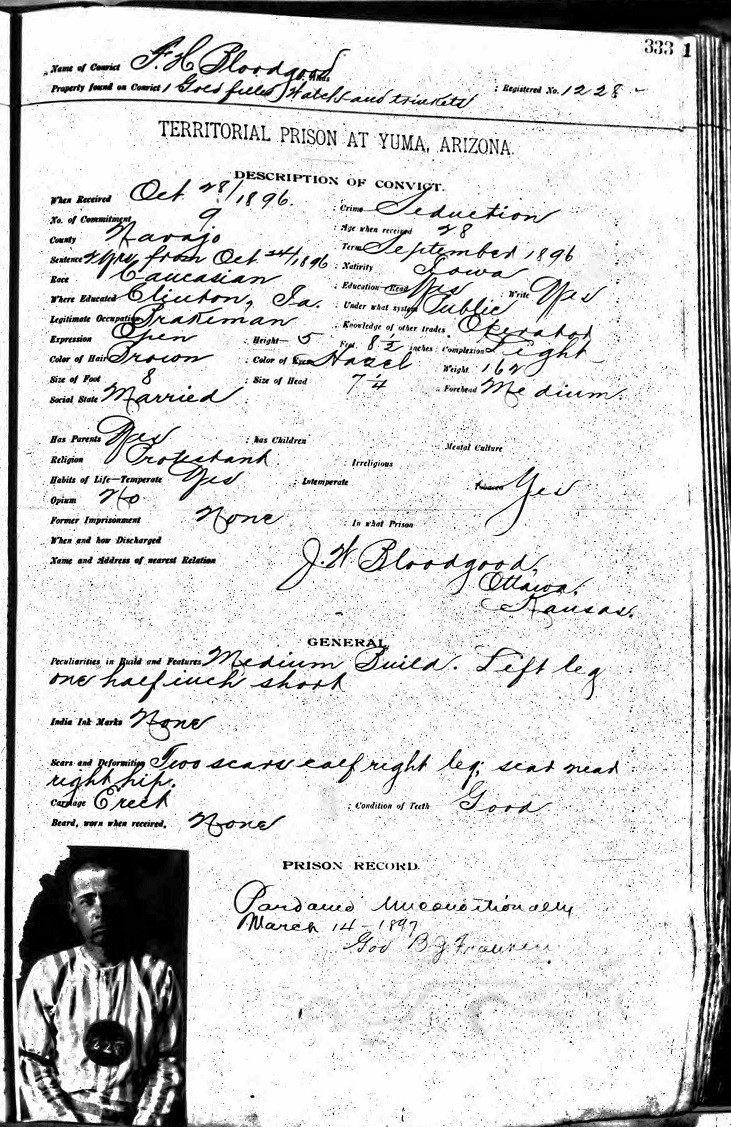 333 1
Name of Convict F. H. Bloodgood
Property found on Convict 1 Gold filled Watch and trinkets : Registered No. 1228
TERRITORIAL PRISON AT YUMA, ARIZONA.
DESCRIPTION OF CONVICT.
When Received Oct 28/1896. : Crime Seduction
No. of Commitment 9 : Age when received 28
County Navajo : Term September 1896
Sentence 2 yrs from Oct 24/1896 : Nativity Iowa
Race Caucasian : Education Read Yes Write Yes
Where Educated Clinton, Ia. : Under what system Public
Legitimate Occupation Brakeman : Knowledge of other trades Operator
Expression Open : Height— 5 Feet 8 1/2 inches : Complexion Light
Color of Hair Brown : Color of Eyes Hazel Weight 162
Size of Foot 8 : Size of Head 7 1/4 : Forehead Medium.
Social State Married
Has Parents Yes : has Children : Mental Culture
Religion Protestant Irreligious
Habits of Life—Temperate Yes Intemperate Tobacco Yes
Opium No.
Former Imprisonment None In what Prison
When and how Discharged
Name and Address of nearest Relation J. W. Bloodgood,
Ottawa,
Kansas.
GENERAL
Peculiarities in Build and Features Medium Build. Left leg
one half inch short
India Ink Marks None
Scars and Deformities Two scars calf right leg; scar near
right hip.
Carriage Erect : Condition of Teeth Good
Beard, worn when received. None
PRISON RECORD.
Pardoned Unconditionally
March 14 - 1897
Gov B. J. Franklin
228